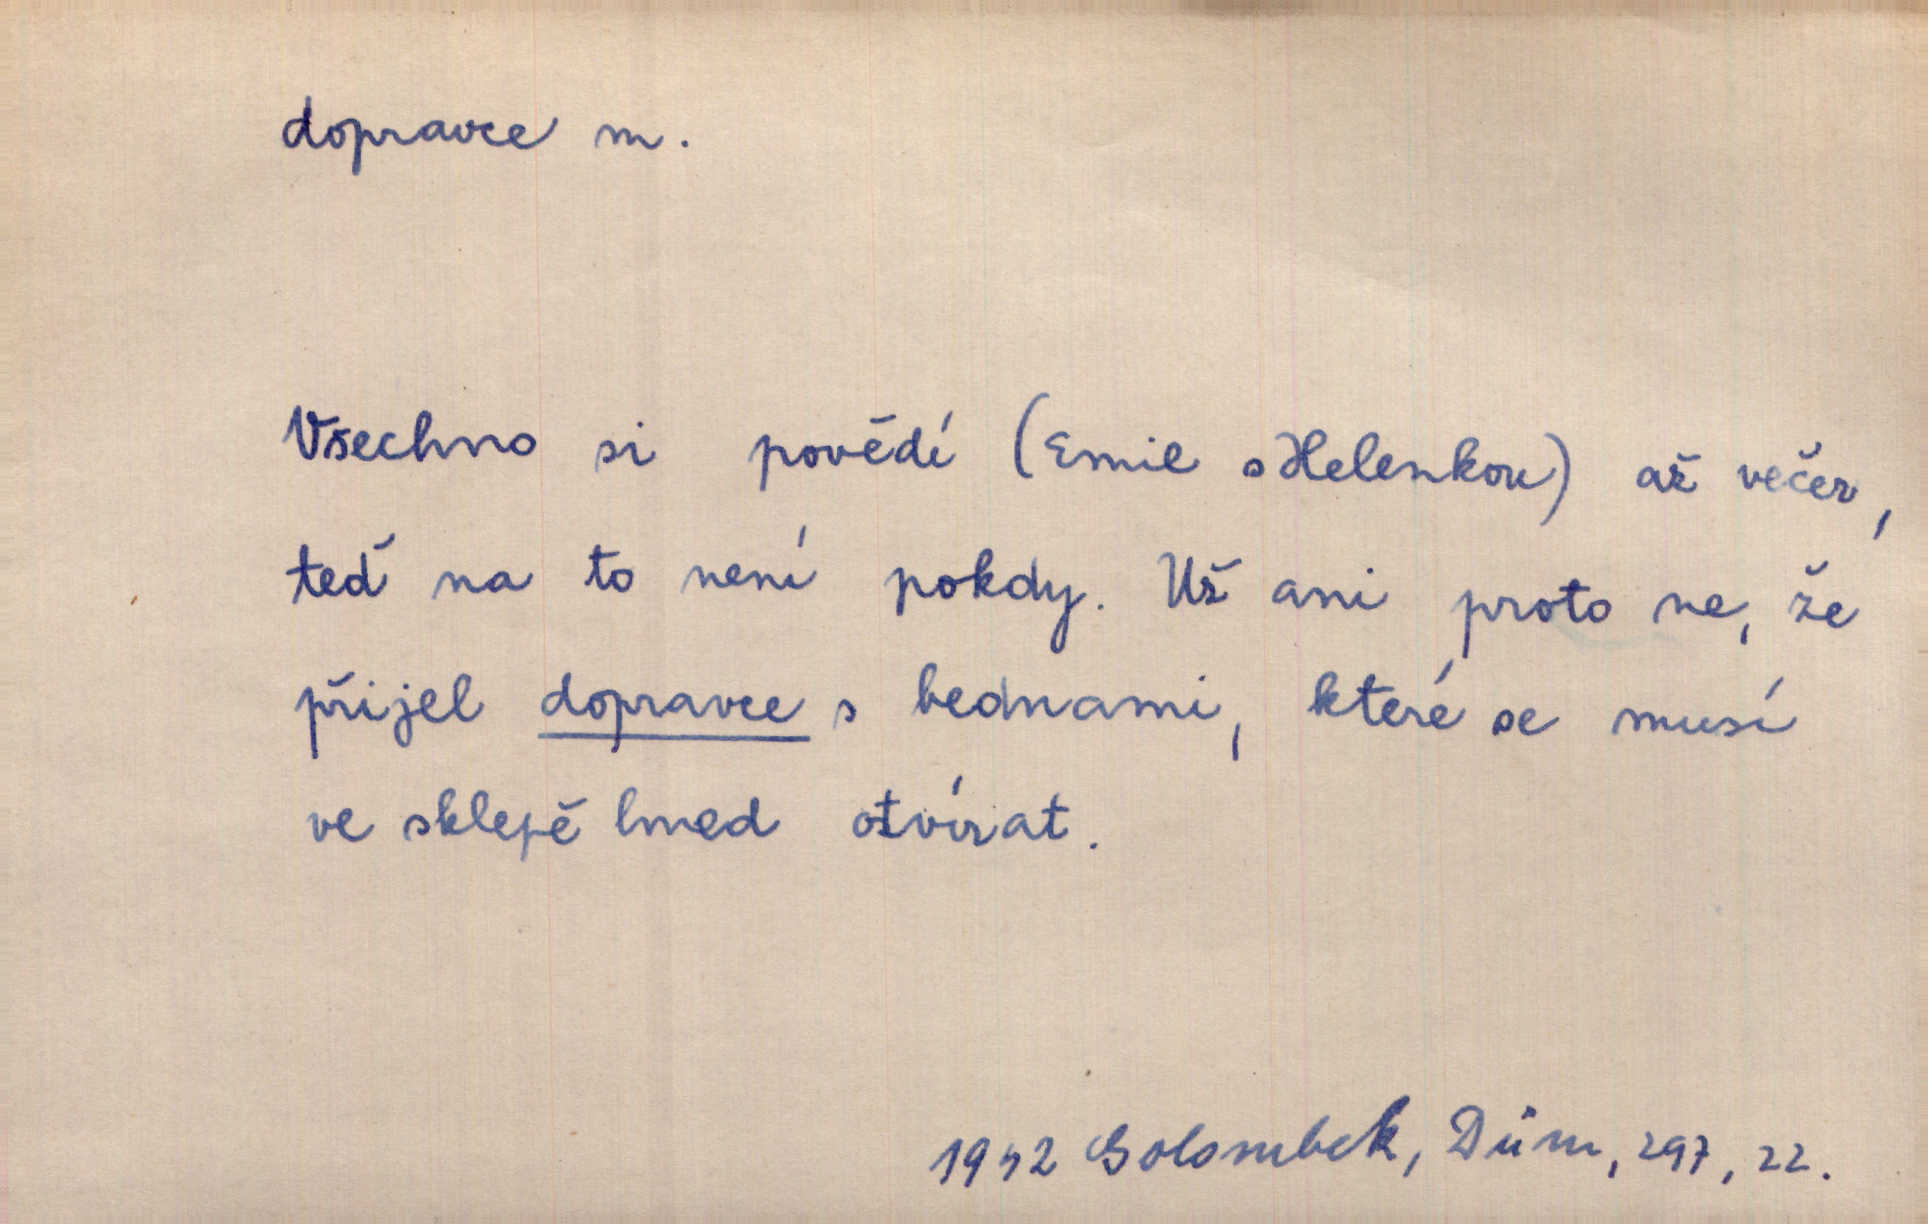 dopravce m.
Všechno si povědí (Emil s Helenkou) až večer,
teď na to není pokdy. Už ani proto ne, že
přijel dopravce s bednami, které se musí
ve sklepě hned otvírat.
1942 Golombek, Dům, 297, 22.